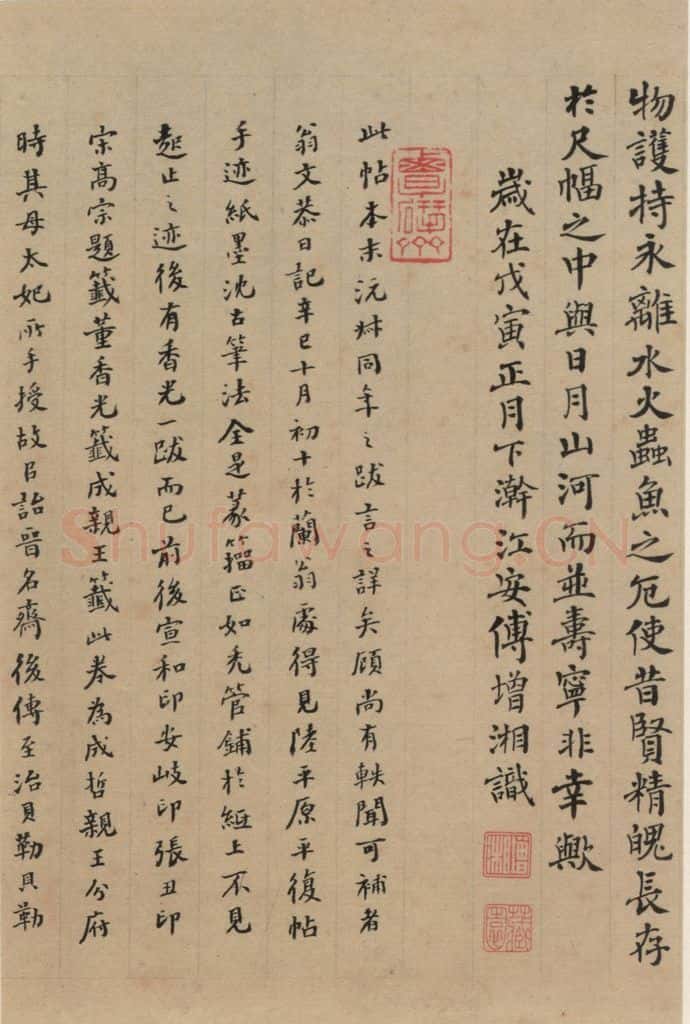 物護持永離水火蟲魚之厄使昔賢精魄長存
於尺幅之中與日月山河而並壽寧非幸歟
歲在戊寅正月下澣江安傅增湘識
此帖本末沅叔同年之跋言之詳矣顧尚有軼聞可補者
翁文恭日記辛巳十月初十於蘭翁處得見陸平原平復帖
手迹紙墨沈古筆法全是篆籀正如禿管鋪於紙上不見
起止之迹後有香光一跋而已前後宣和印安岐印張丑印
宋高宗題籤董香光籤成親王籤此卷為成哲親王分府
時其母太妃所手授故有詒晉名齋後傳至治貝勒貝勒
Shufawang.CN